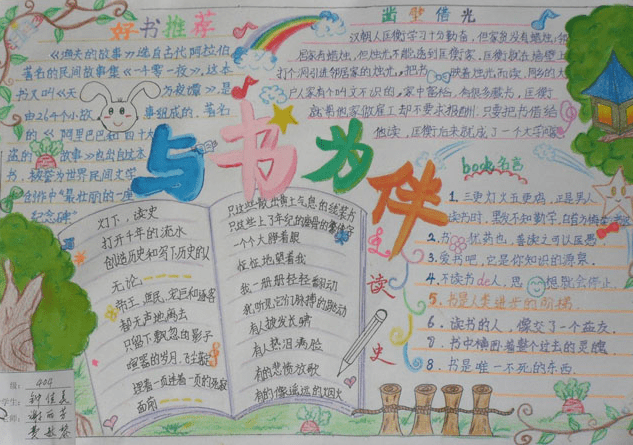 好书推荐
《渔夫的故事》选自古代阿拉伯
著名的民间故事集《一千零一夜》,这本
书又叫《天方夜谭》,是
由264个小故事组成的,著名
的《阿里巴巴和四十大
盗的故事》也出自这本
书,被誉为世界民间文学
创作中“最壮丽的一座
纪念碑”
凿壁借光
汉朝人匡衡学习十分勤奋,但家贫没有蜡烛,邻
居家有蜡烛,但烛光不能透到匡衡家,匡衡就在墙壁上
打个洞引进邻居家的烛光,把书映着烛光而读,同乡的大
户人家有个叫文不识的,家中富裕,有很多藏书,匡衡
就帮他家做雇工却不要求报酬,只要把书借给
他读,匡衡后来就成了一个大学
与书为伴
灯下,读史
打开千年的流水
创造历史和写下历史的人
无论
帝王、庶民、宠臣和逐客
都无声地离去
只留下飘忽的影子
喧嚣的岁月
一页连着一页的
面前
只这些散出黄土气息的线装书
只这些上了年纪的
一个个睁着眼
怔怔地望着我
我一册册轻轻翻动
我听见它们脉搏的跳动
有人披发长啸
有人热泪满脸
有的悲愤放歌
有的像遥远的烟火
读
史
book名言
1.三更灯火五更鸡,正是男人
读书时,黑发不知勤学早,白首方悔读书迟
2.书犹药也,善读之可以医愚
3.爱书吧,它是你知识的源泉.
4.不读书de人,思想就会停止.
5.书是人类进步的阶梯.
6.读书的人,像交了一个益友.
7.书中横卧着整个过去的灵魂
8.书是唯一不死的东西.
级:404
学生:钟佳
师:谢